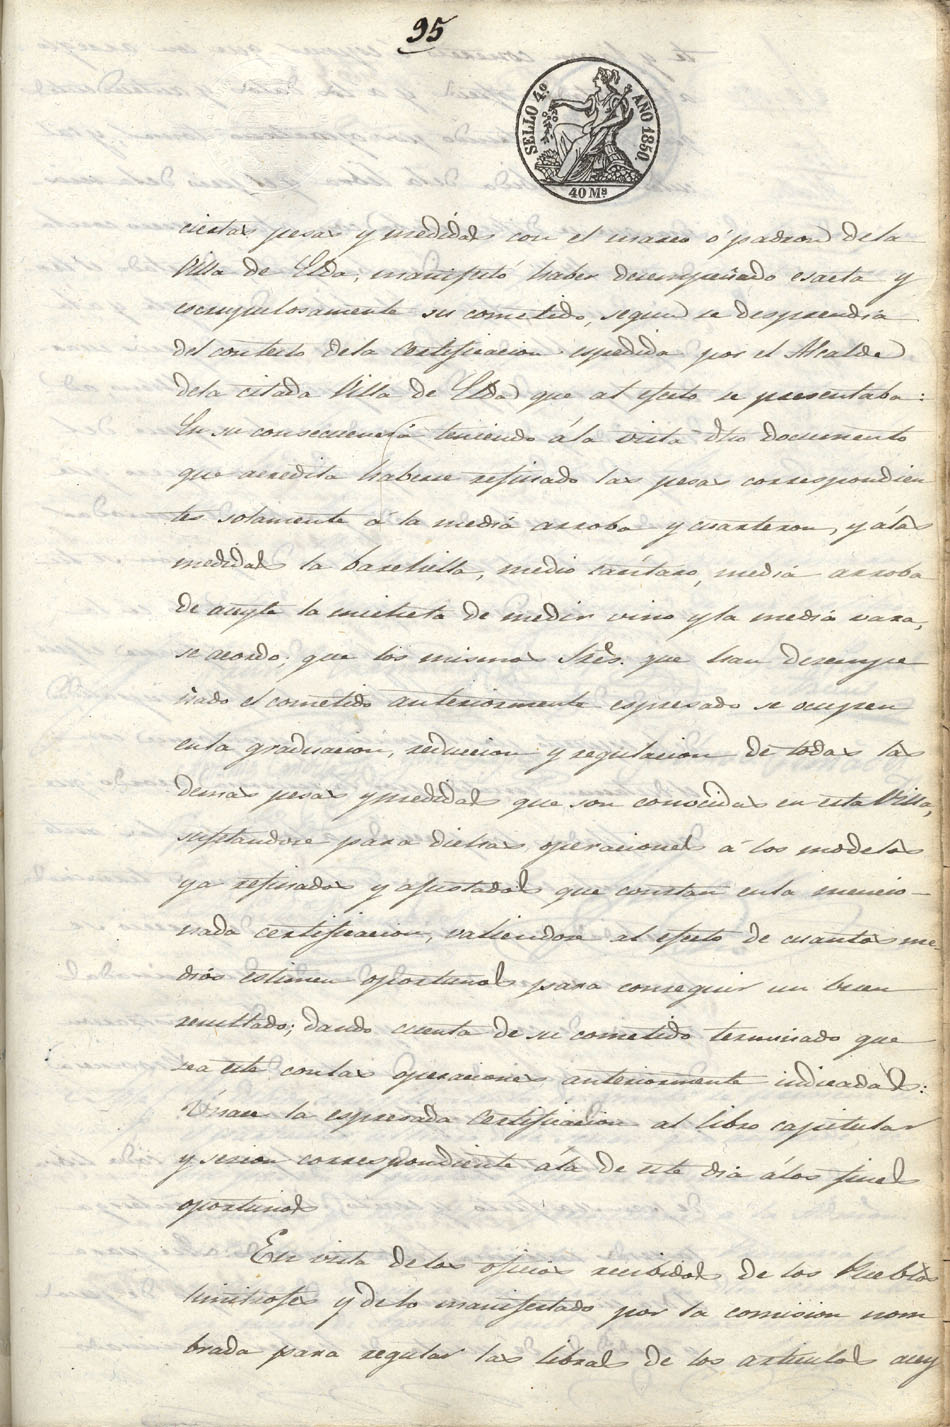 95
SELLO 4.º AÑO 1850.
40 Ms
ciertas pesas y medidas con el marco ó padron de la
Villa de Elda; manifestó haber desempeñado esacta y
escrupulosamente su cometido, segun se desprendia
del contesto de la Certificacion espedida por el Alcalde
dela citada Villa de Elda que al efecto se presentaba:
En su consecuencia teniendo á la vista dho documento
que acredita haberse refinado las pesas correspondien
tes solamente á la media arroba y cuarteron, y á las
medidas la barchilla, medio cantaro, media arroba
de aceyte la micheta de medir vino y la media vara,
se acordo; que los mismos Sres. que han desempe
ñado el cometido anteriormente espresado se ocupen
en la graduacion, reduccion y regulacion de todas las
demas pesas y medidas que son conocidas en esta Villa,
sugetandose para dichas operaciones á los modelos
ya refinados y ajustados que constan en la mencio-
nada certificacion, valiendose al efecto de cuantos me-
dios estimen oportunos para conseguir un buen
resultado; dando cuenta de su cometido terminado que
sea este con las operaciones anteriormente indicadas:
Unase la espresada Certificacion al libro capitular
y sesion correspondiente á la de este dia á los fines
oportunos
En vista de los oficios recibidos de los Pueblos
limitrofes y de lo manifestado por la comision nom
brada para regular las libras de los articulos acey